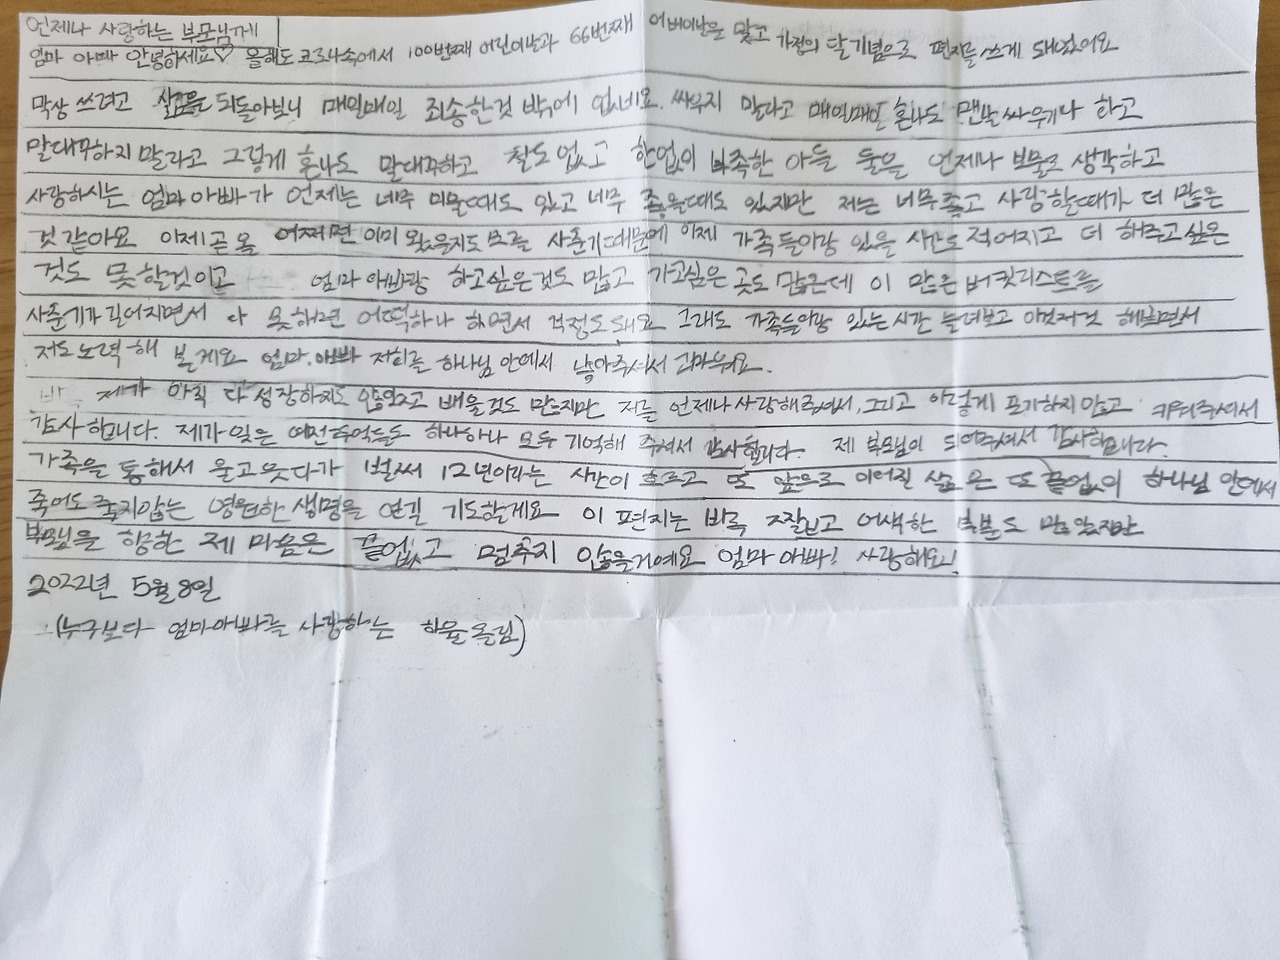 언제나 사랑하는 부모님께
엄마 아빠 안녕하세요♡ 올해도 코로나속에서 100번째 어린이날과 66번째 어버이날을 맞고 가정의 달 기념으로 편지를 쓰게 돼었어요
막상 쓰려고 삶을 되돌아보니 매일매일 죄송한것 밖에 없네요. 싸우지 말라고 매일매일 혼나도 맨날 싸우기나 하고
말대꾸하지 말라고 그렇게 혼나도 말대꾸하고 철도 없고 한없이 부족한 아들 둘을 언제나 보물로 생각하고
사랑하시는 엄마 아빠가 언제는 너무 미울때도 있고 너무 좋을때도 있지만 저는 너무 좋고 사랑할때가 더 많은
것 같아요 이제 곧 올 어쩌면 이미 왔을지도 모를 사춘기 때문에 이제 가족들이랑 있을 시간도 적어지고 더 해주고 싶은
것도 못할것이고 엄마 아빠랑 하고싶은것도 많고 가고싶은 곳도 많은데 이 많은 버킷리스트를
사춘기가 길어지면서 다 못하면 어떡하나 하면서 걱정도 돼요 그래도 가족들이랑 있는 시간 늘려보고 이것저것 해보면서
저도 노력해 볼게요 엄마, 아빠 저희를 하나님 안에서 낳아주셔서 고마워요.
제가 아직 다 성장하지도 않았고 배울것도 많지만 저를 언제나 사랑해주셔서, 그리고 이렇게 포기하지 않고 키워주셔서
감사합니다. 제가 잊은 예전추억들도 하나하나 모두 기억해 주셔서 감사합니다. 제 부모님이 되어주셔서 감사합니다.
가족을 통해서 울고 웃다가 벌써 12년이라는 시간이 흐르고 또 앞으로 이어질 삶은 또 끝없이 하나님 안에서
죽어도 죽지않는 영원한 생명을 얻길 기도할게요 이 편지는 비록 짧고 어색한 부분도 많있지만
부모님을 향한 제 마음은 끝없고 멈추지 않을거예요 엄마 아빠! 사랑해요!
2022년 5월 8일
(누구보다 엄마아빠를 사랑하는 하율 올림)